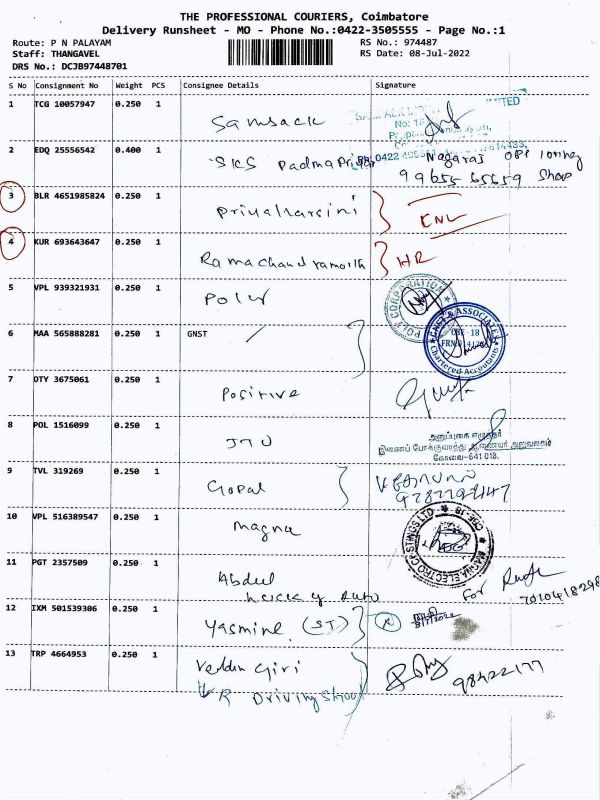 THE PROFESSIONAL COURIERS, Coimbatore
Delivery Runsheet - MO - Phone No.:0422-3505555 - Page No.:1
Route: P N PALAYAM RS No.: 974487
Staff: THANGAVEL RS Date: 08-Jul-2022
DRS No.: DCJB97448701
S No Consignment No Weight PCS Consignee Details Signature
1 TCG 10057947 0.250 1 Samsack
2 EDQ 25556542 0.400 1 SKS Padma Nagaraj
99655 65659 Shop
3 BLR 4651985824 0.250 1 Priyadharsini
4 KUR 693643647 0.250 1 Ramachandramorth HR
5 VPL 939321931 0.250 1 Poly POLY CORPORATION
6 MAA 565888281 0.250 1 GNST GNST & ASSOCIATES
Chartered Accountants
7 OTY 3675061 0.250 1 Positive
8 POL 1516099 0.250 1 JTU
இணைப் போக்குவரத்து ஆணையர் அலுவலகம்
கோவை-641 018.
9 TVL 319269 0.250 1 Gopal
10 VPL 516389547 0.250 1 Magna MAGNA ELECTRO CASTINGS LTD CBE-18
11 PGT 2357509 0.250 1 Abdul For
Auto 7010418298
12 IXM 501539306 0.250 1 Yasmine (ST) 8/7/2022
13 TRP 4664953 0.250 1 Giri 98422177
VR Driving School